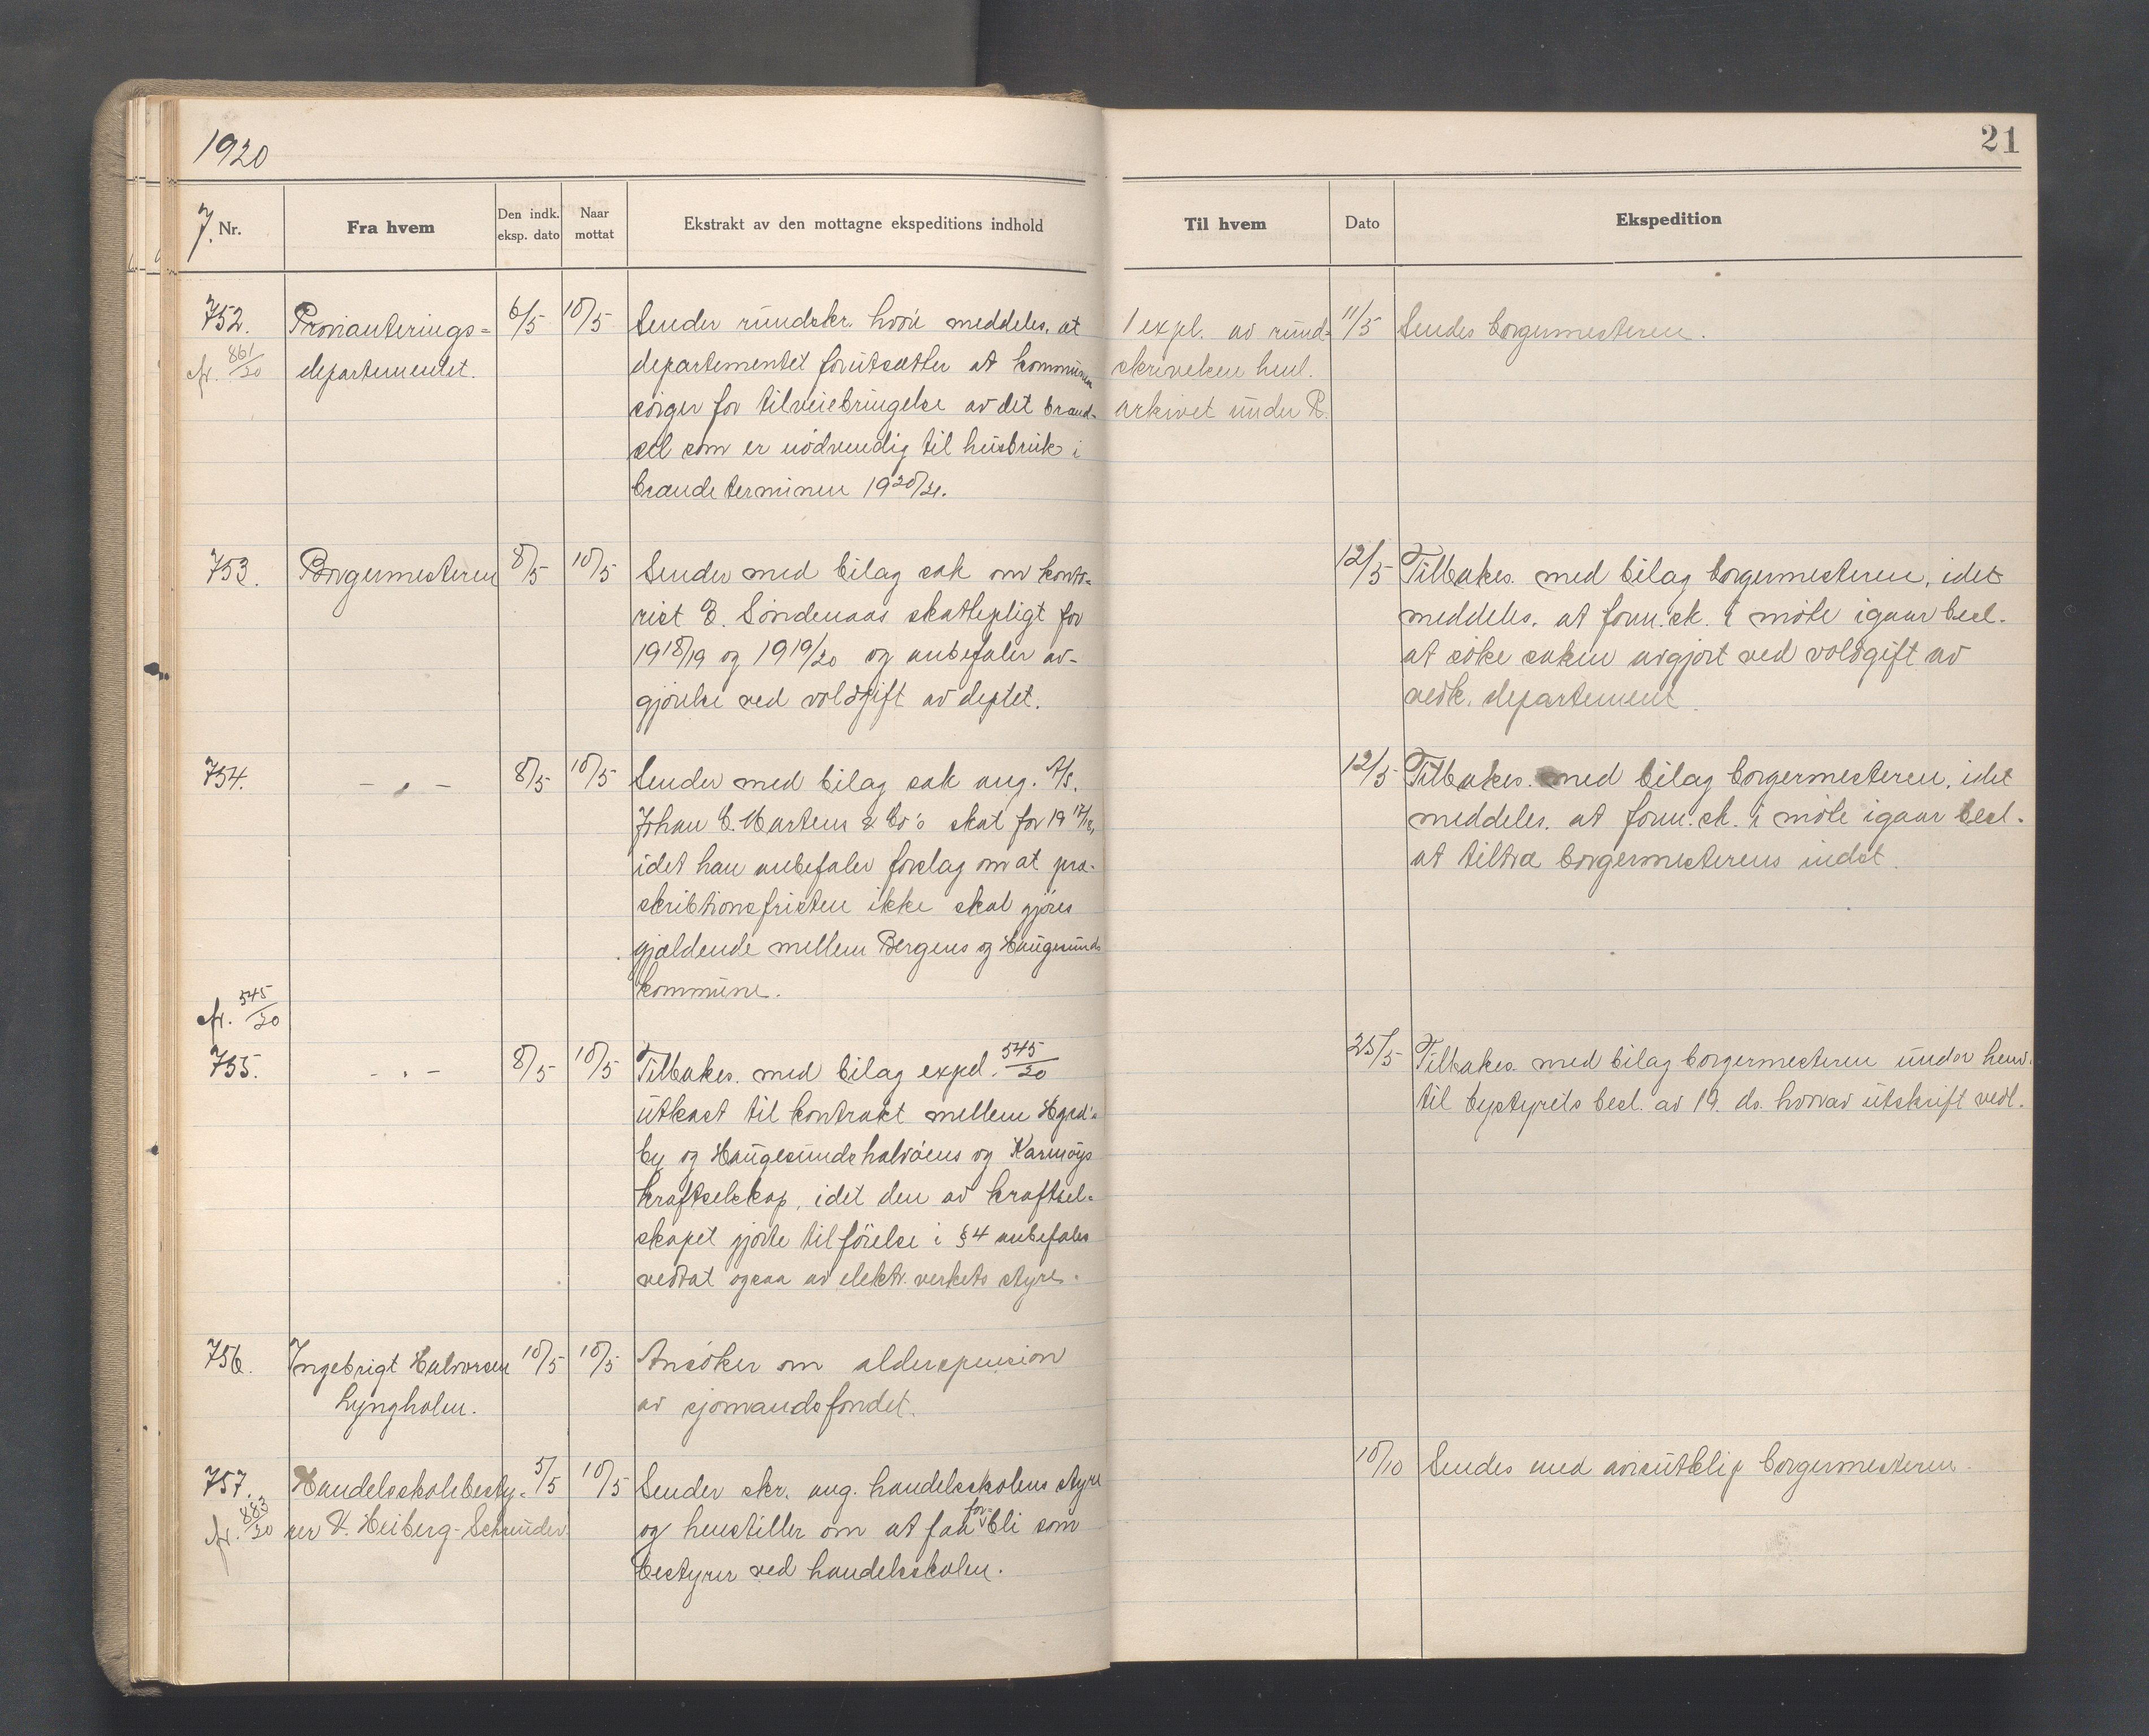 1920
21
J. Nr.
Fra hvem
Den indk. eksp. dato
Naar mottat
Ekstrakt av den mottagne ekspeditions indhold
Til hvem
Dato
Ekspedition
752.
cfr. 861/20
Provianterings-
departementet.
6/5
10/5
Sender rundskr. hvori meddeles, at
departementet forutsætter at kommunen
sörger for tilveiebringelse av det brænd-
sel som er nödvendig til husbruk i
brændeterminen 1920/21.
1 expl. av rund-
skrivelsen henl.
arkivet under R.
11/5
Sendes borgermesteren.
753.
Borgermesteren
8/5
10/5
Sender med bilag sak om konto-
rist E. Söndenaas skattepligt for
1918/19 og 1919/20 og anbefaler av-
gjörelse ved voldgift av deptet.
12/5
Tilbakes. med bilag borgermesteren, idet
meddeles, at form.sk. i möte igaar besl.
at söke saken avgjort ved voldgift av
vedk. departement.
754.
- " -
8/5
10/5
Sender med bilag sak ang. A/S.
Johan C. Martens & Co's skat for 1917/18,
idet han anbefaler forslag om at præ-
skribtionsfristen ikke skal gjöres
gjældende mellem Bergens og Haugesunds
kommune.
12/5
Tilbakes. med bilag borgermesteren, idet
meddeles, at form.sk. i möte igaar besl.
at tiltræ borgermesterens indst.
cfr. 545/20
755.
- " -
8/5
10/5
Tilbakes. med bilag exped. 545/20
utkast til kontrakt mellem Hgsd's
by og Haugesundshalvöens og Karmöys
kraftselskap, idet den av kraftsel-
skapet gjorte tilförelse i § 4 anbefales
vedtat ogsaa av elektr. verkets styre.
25/5
Tilbakes. med bilag borgermesteren under henv.
til bystyrets besl. av 19. ds. hvorav utskrift vedl.
756.
Ingebrigt Halvorsen
Lyngholm.
10/5
10/5
Ansöker om alderspension
av sjomandsfondet.
757.
cfr. 883/20
Handelsskolebesty-
rer V. Heiberg-Schrüder
5/5
10/5
Sender skr. ang. handelsskolens styre
og henstiller om at faa for-bli som
bestyrer ved handelsskolen.
10/10
Sendes med avisutklip borgermesteren.